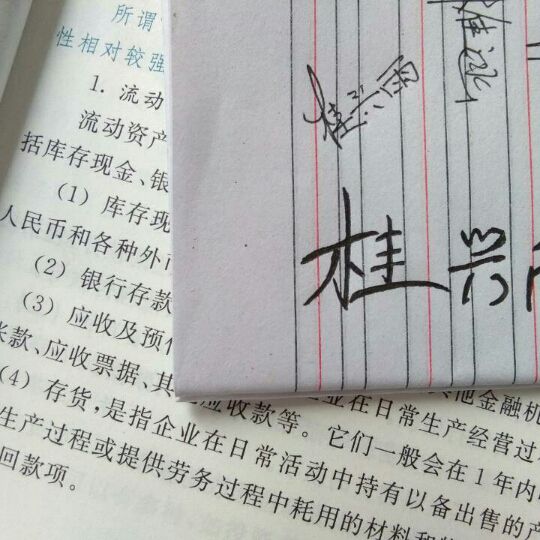 所谓
性相对较强
1. 流动
流动资产
括库存现金、银
(1) 库存现
人民币和各种外币
(2) 银行存款
(3) 应收及预付
账款、应收票据、其 应收款等。它们一般会在1年内
(4) 存货,是指企业在日常活动中持有以备出售的产
生产过程或提供劳务过程中耗用的材料和
回款项。
他金融机
业在日常生产经营过
桂兴雨
桂兴